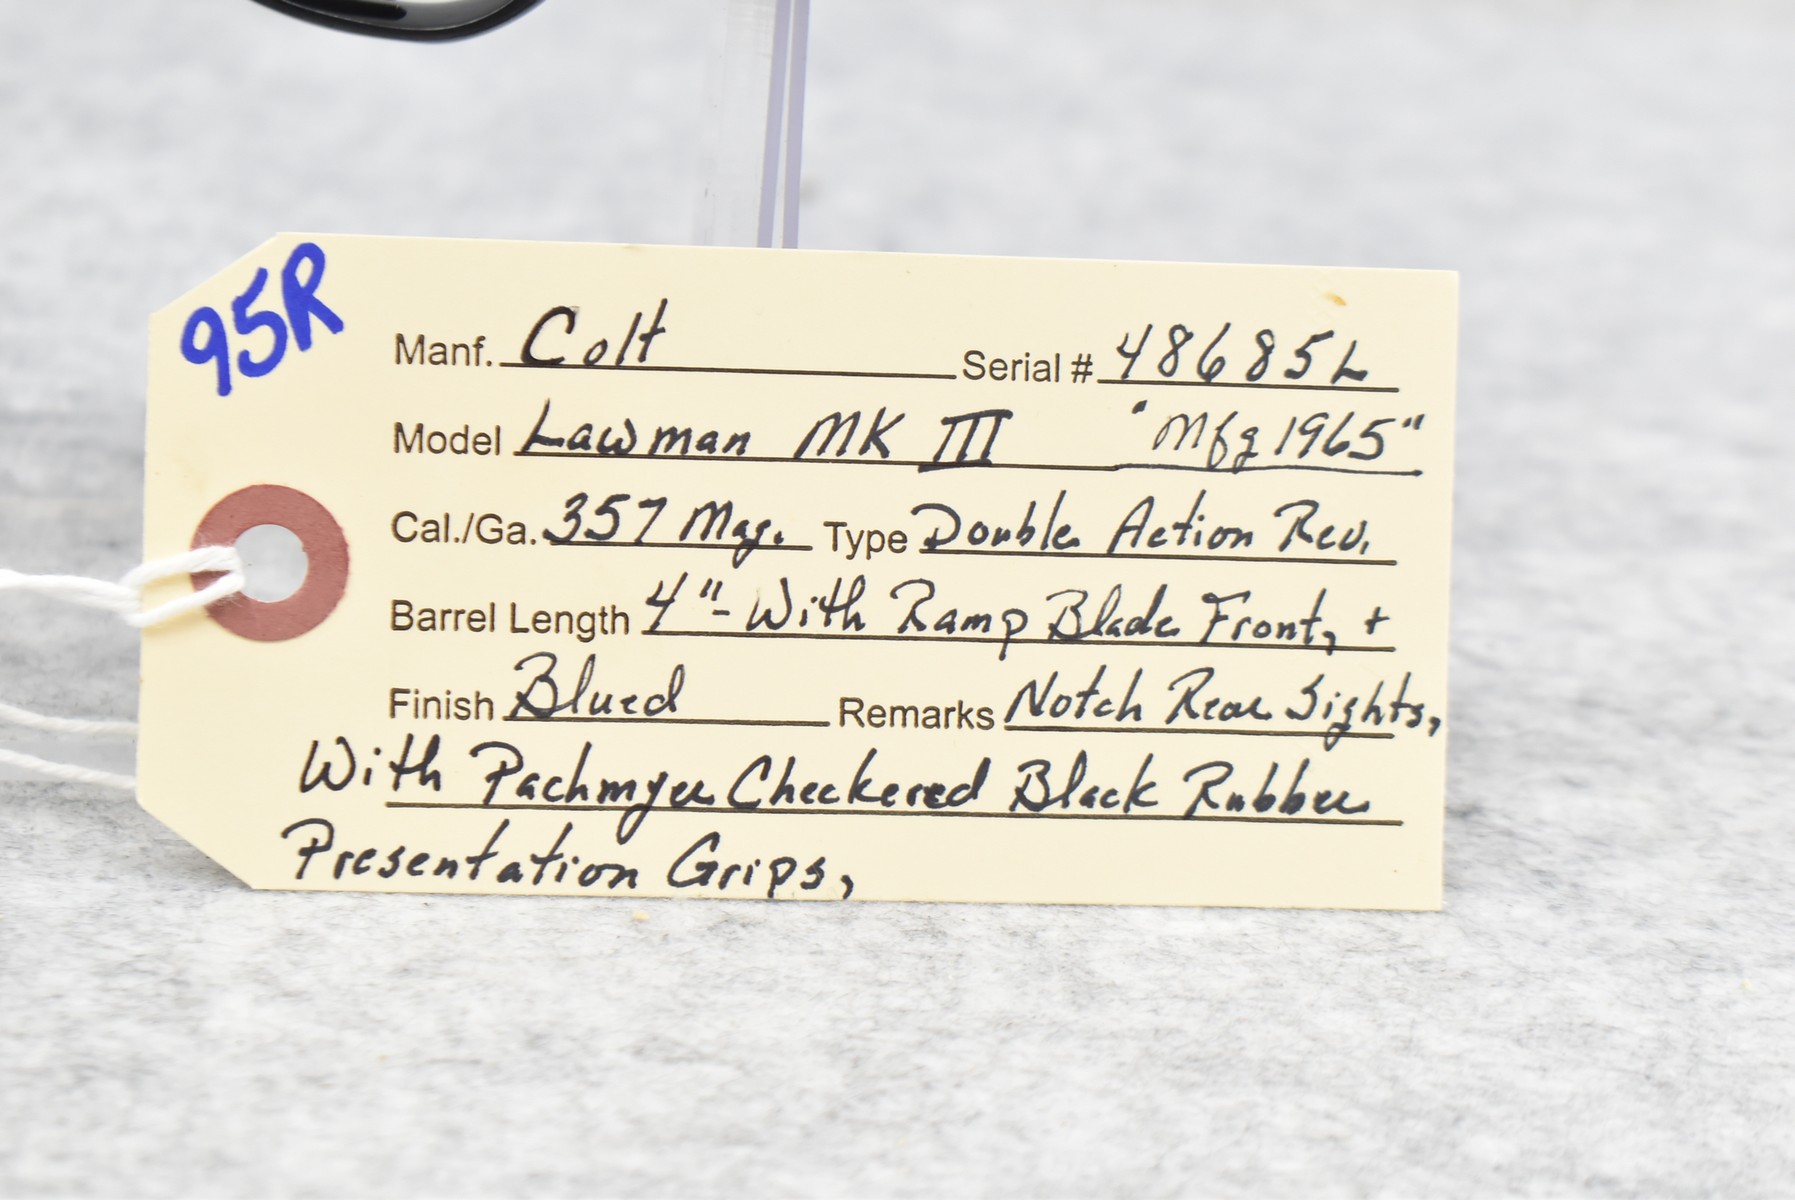 95R
Manf. Colt Serial # 48685L
Model Lawman MK III "Mfg 1965"
Cal./Ga. 357 Mag. Type Double Action Rev.
Barrel Length 4"- With Ramp Blade Front, +
Finish Blued Remarks Notch Rear Sights,
With Pachmyer Checkered Black Rubber
Presentation Grips,